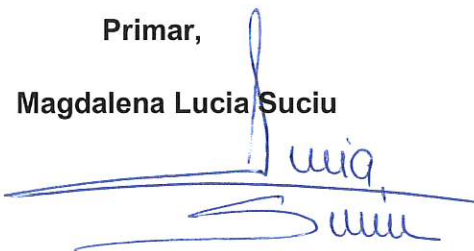 Primar,
Magdalena Lucia Suciu
Lucia
Suciu